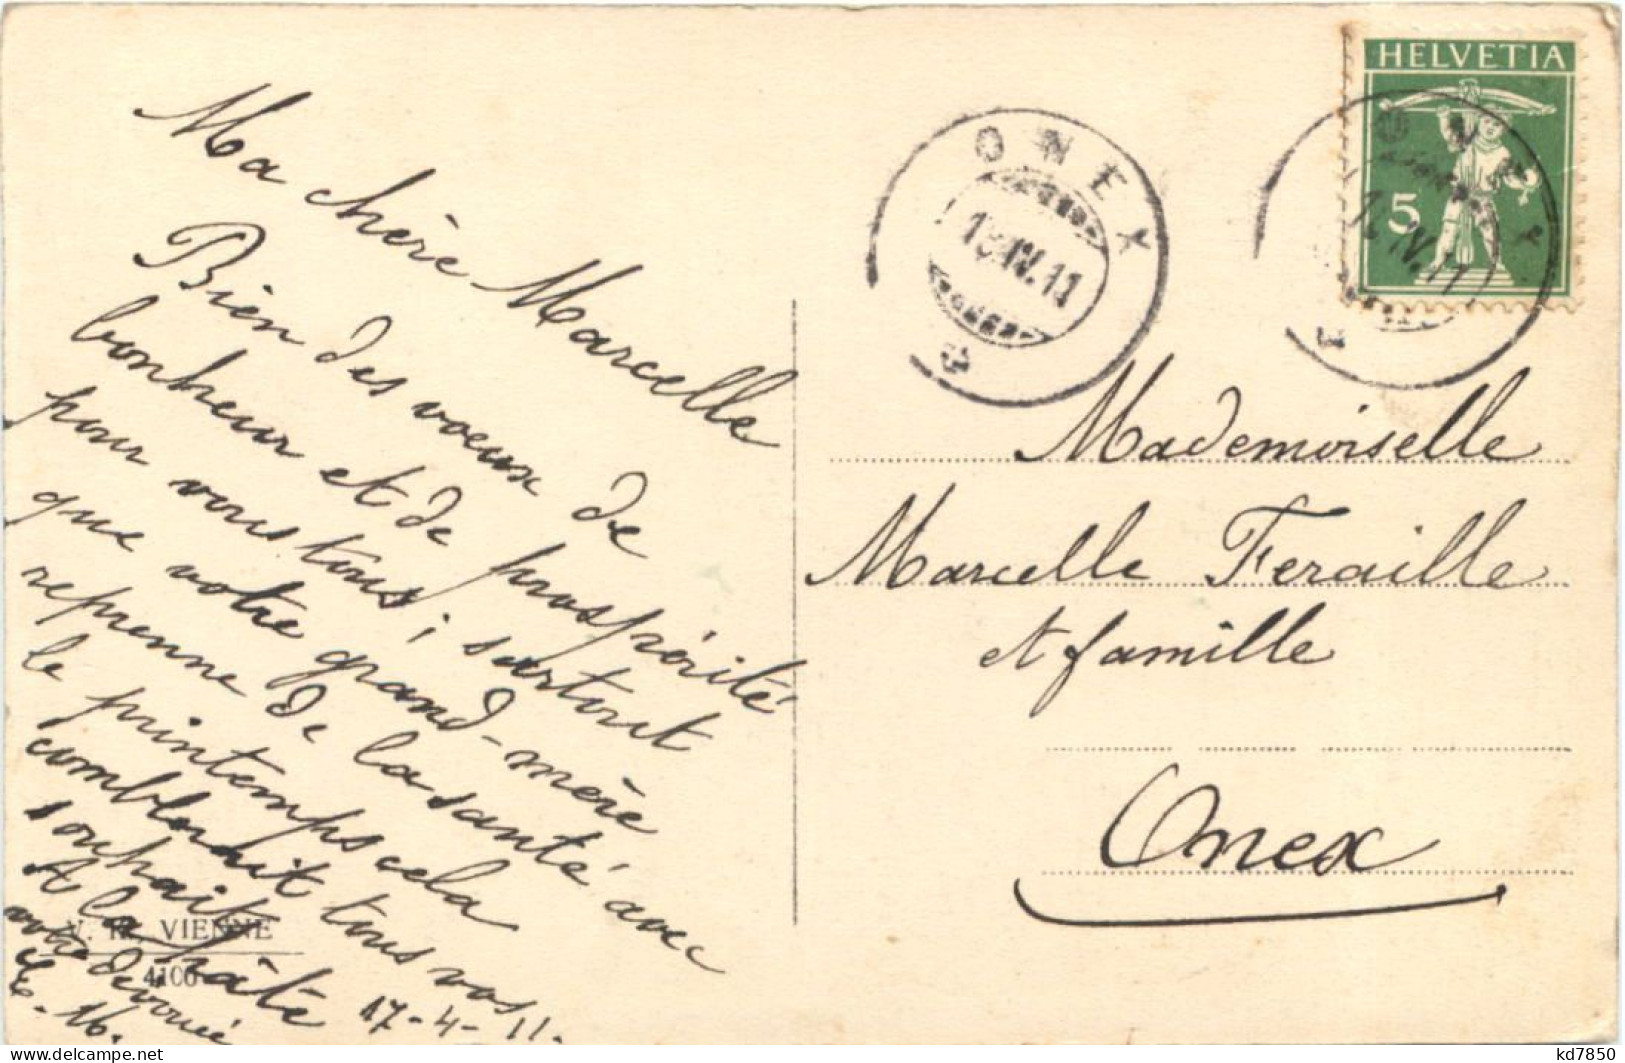 Ma chère Marcelle
Bien des voeux de
bonheur et de prospérité
pour vous tous; surtout
que votre grand-mère
reprenne de la santé avec
le printemps cela
comblerait tous vos
souhaits
A la hâte 17-4-11.
votre dévouée
VIENNE
4100
HELVETIA
5
ONEX
IV.11
ONEX
IV.11
Mademoiselle
Marcelle Feraille
et famille
Onex
kd7850